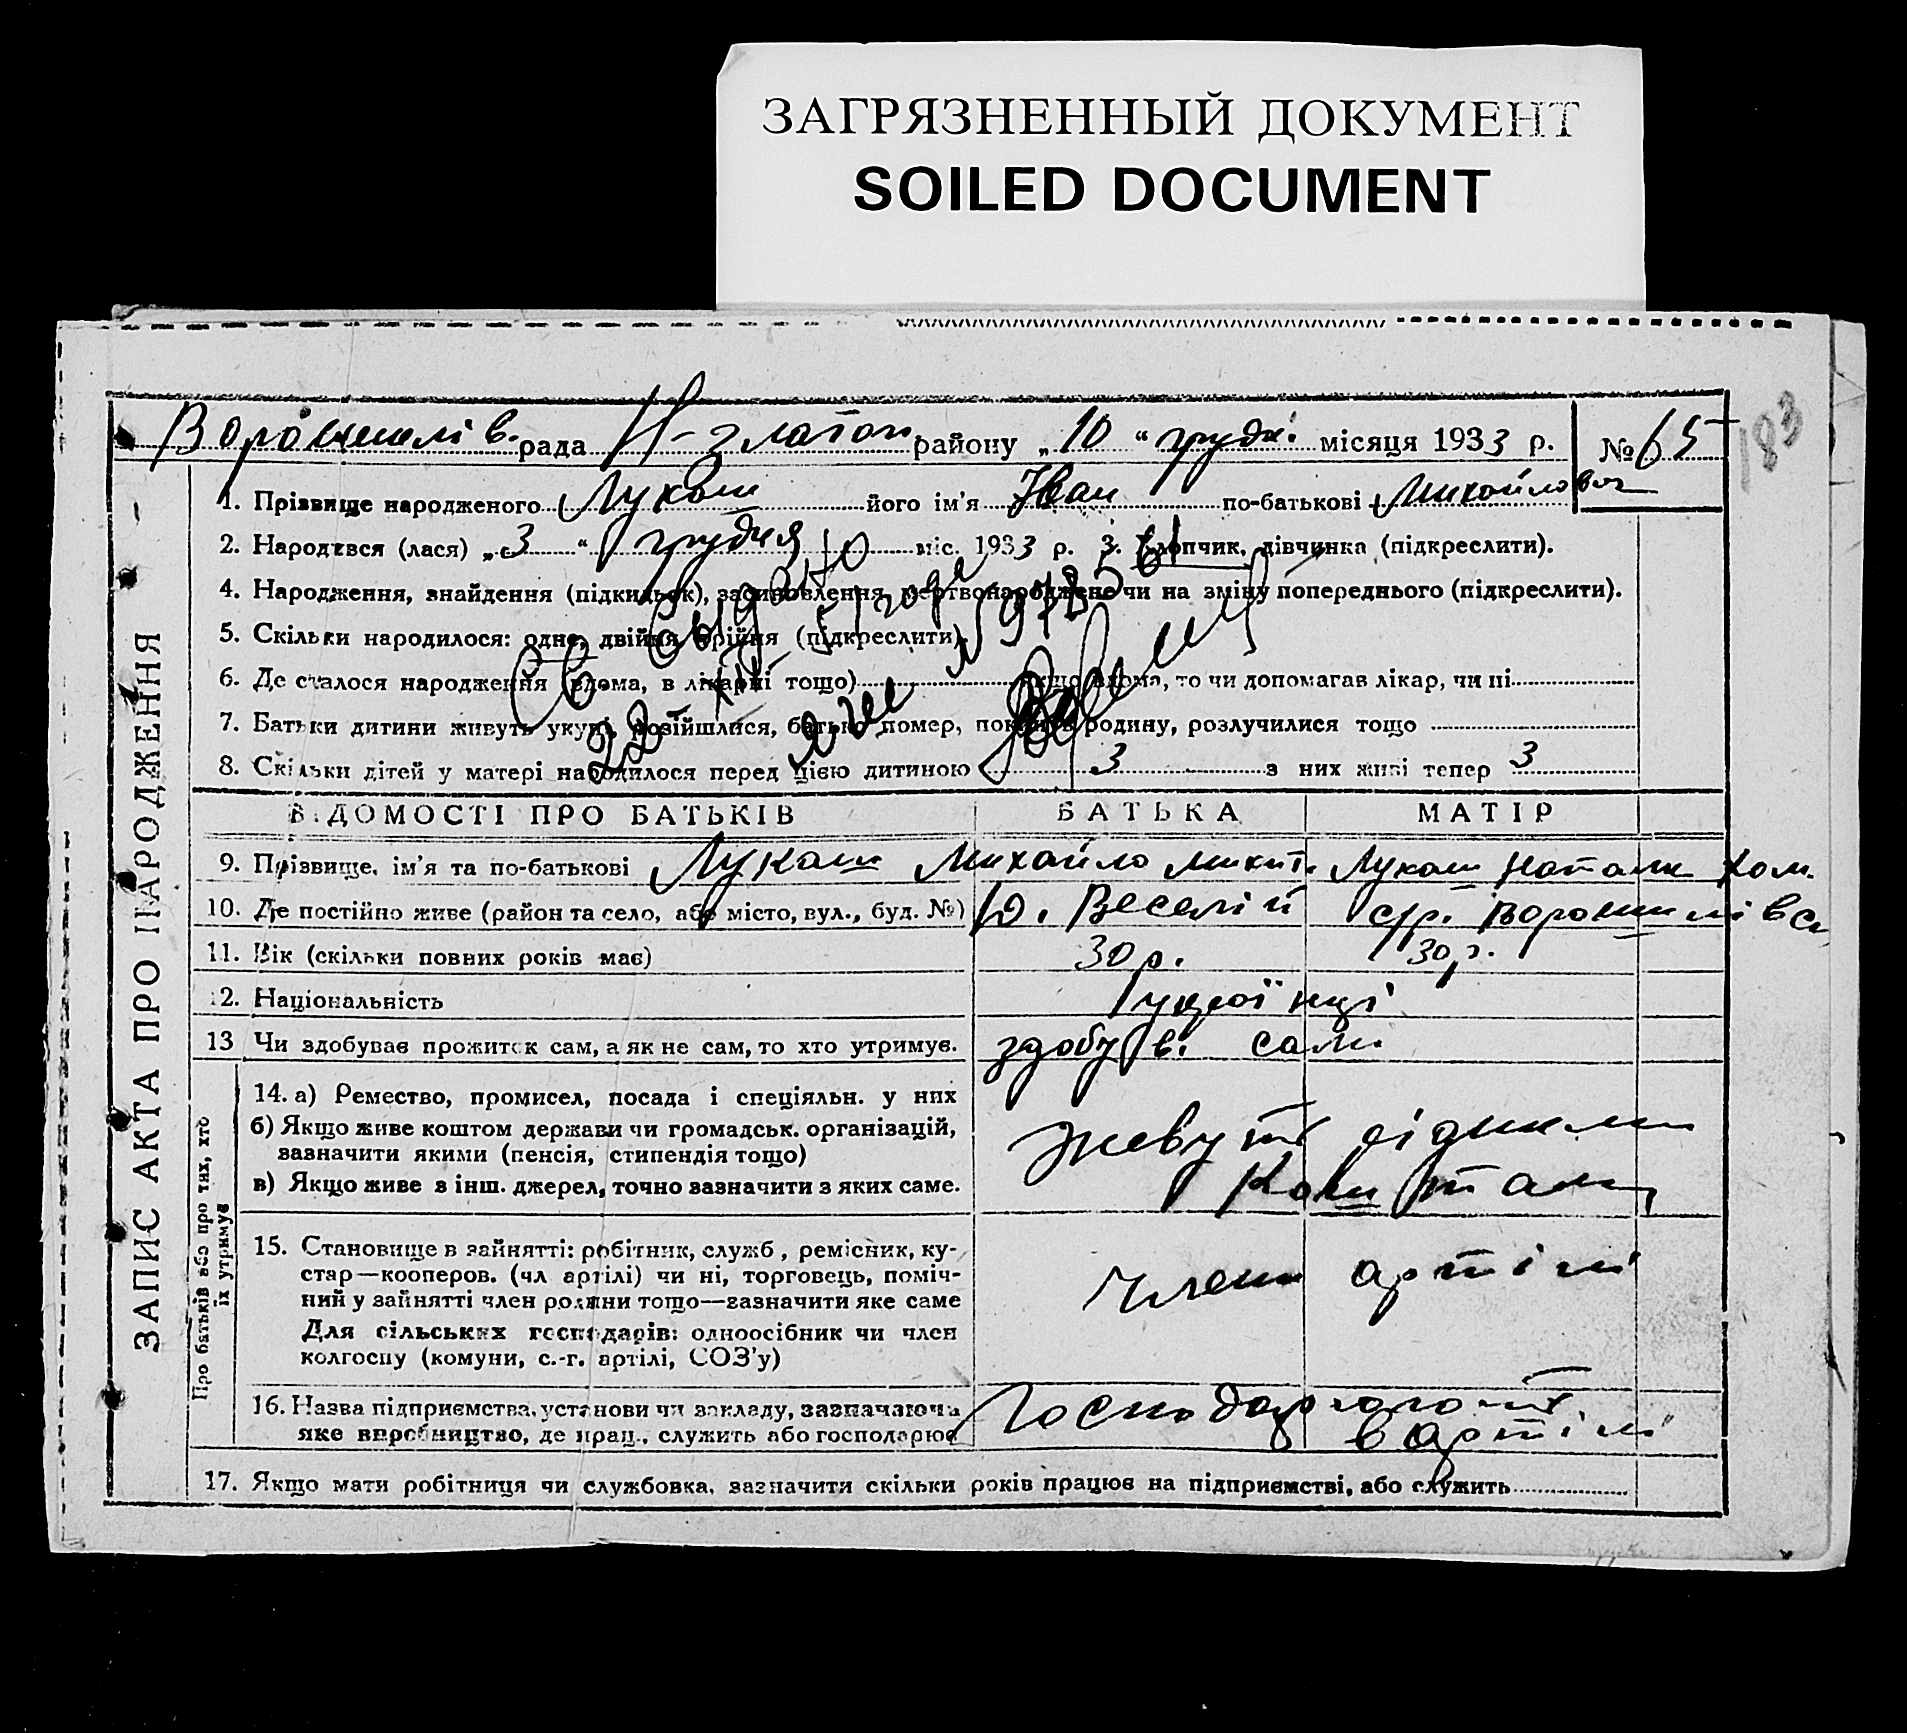 ЗАГРЯЗНЕННЫЙ ДОКУМЕНТ
SOILED DOCUMENT
183
ЗАПИС АКТА ПРО НАРОДЖЕННЯ
Ворошилів. рада Н-златоп. району „10“ грудн. місяця 1933 р. № 65
1. Прізвище народженого Лукаш його ім'я Іван по-батькові Михайлович
2. Народився (лася) „3“ грудня міс. 1933 р. 3. Хлопчик, дівчинка (підкреслити).
4. Народження, знайдення (підкидьок), засиновлення, мертвонароджене чи на зміну попереднього (підкреслити).
5. Скільки народилося: одне, двійня трійня (підкреслити).
6. Де сталося народження (вдома, в лікарні тощо) якщо вдома, то чи допомагав лікар, чи ні
7. Батьки дитини живуть укупі, розійшлися, батько помер, покинув родину, розлучилися тощо
8. Скільки дітей у матері народилося перед цією дитиною 3 з них живі тепер 3
Св выдано
22 XII- 51 года
ВІДОМОСТІ ПРО БАТЬКІВ БАТЬКА МАТІР
9. Прізвище, ім'я та по-батькові Лукаш Михайло Микит. Лукаш Наталк Хом.
10. Де постійно живе (район та село, або місто, вул., буд. №) Веселій с/р. Ворошилівськ
11. Вік (скільки повних років має) 30 р. 30 р.
12. Національність українці
13 Чи здобуває прожиток сам, а як не сам, то хто утримує. здобув. сами
Про батьків або про тих, хто
їх утримує
14. а) Ремество, промисел, посада і спеціяльн. у них
б) Якщо живе коштом держави чи громадськ. організацій,
зазначити якими (пенсія, стипендія тощо)
в) Якщо живе з інш. джерел, точно зазначити з яких саме.
живуть рідними
коштами
15. Становище в зайнятті: робітник, служб, ремісник, ку-
стар—кооперов. (чл артілі) чи ні, торговець, поміч-
ний у зайнятті член родини тощо—зазначити яке саме
Для сільських господарів: одноосібник чи член
колгоспу (комуни, с.-г. артілі, СОЗ'у)
члени артілі
16. Назва підприємства, установи чи закладу, зазначаючи
яке виробництво, де прац., служить або господарює
господарюють
в артілі
17. Якщо мати робітниця чи службовка, зазначити скільки років працює на підприємстві, або служить